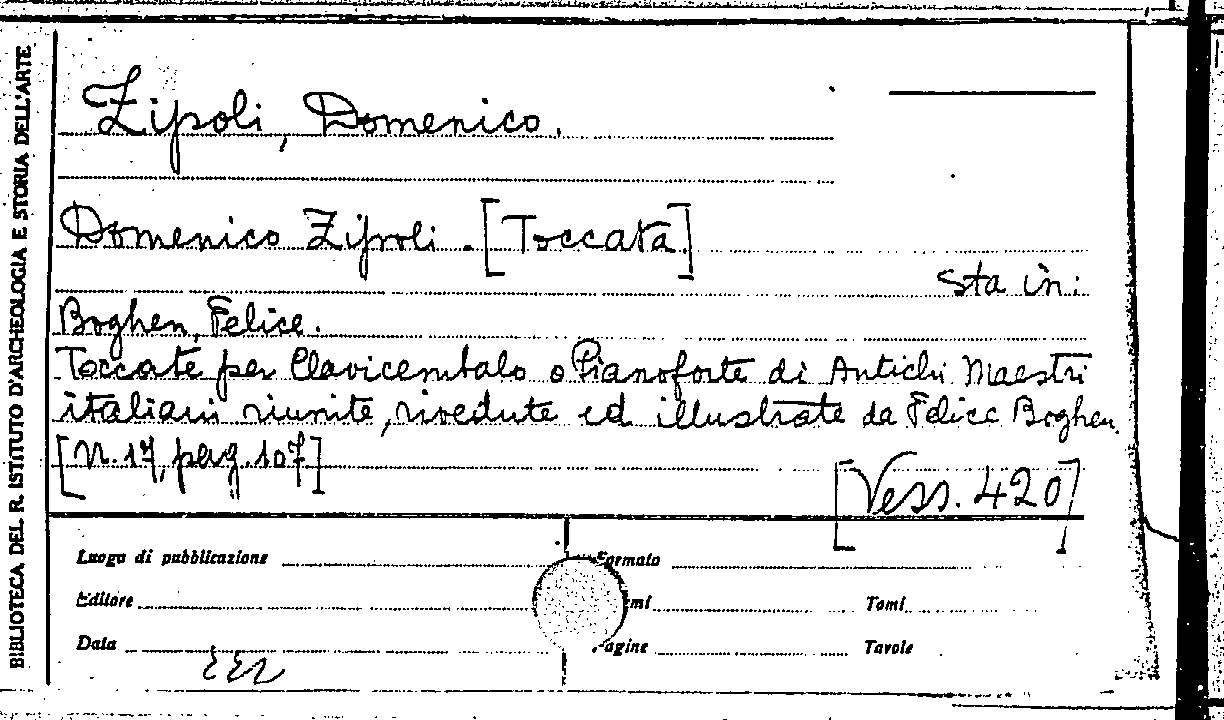 BIBLIOTECA DEL R. ISTITUTO D'ARCHEOLOGIA E STORIA DELL'ARTE
Zipoli, Domenico.
Domenico Zipoli. [Toccata]
Sta in:
Boghen, Felice.
Toccate per Clavicembalo o Pianoforte di Antichi Maestri
italiani riunite, rivedute ed illustrate da Felice Boghen.
[N. 17, pag. 107]
[Vess. 420]
Luogo di pubblicazione
Formato
Editore
Tomi
Data
Tavole